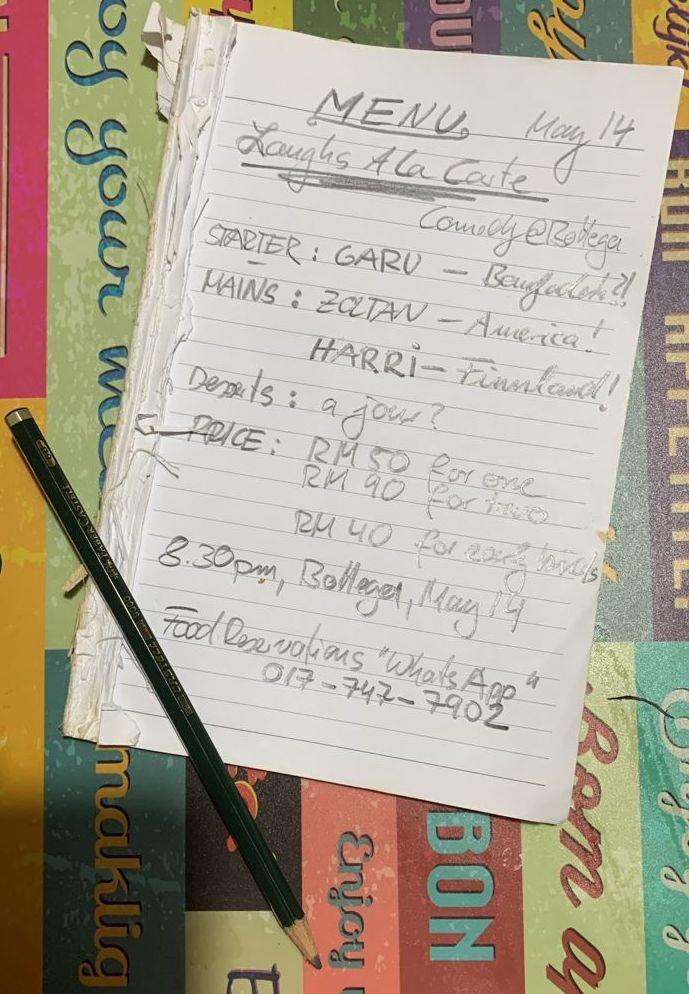 MENU May 14
Laughs A La Carte
Comedy@Bottega
STARTER : GARU – Bangladesh?!
MAINS : ZOLTAN – America!
HARRi – Finnland!
Deserts : a jour?
PRICE : RM 50 for one
RM 90 for two
RM 40 for early birds
8.30pm, Bottega, May 14
Food Reservations "WhatsApp"
017-747-7902
oy your me
smaklig
Enjoy
BON
Bom
BON APPETIT
FABER-CASTELL